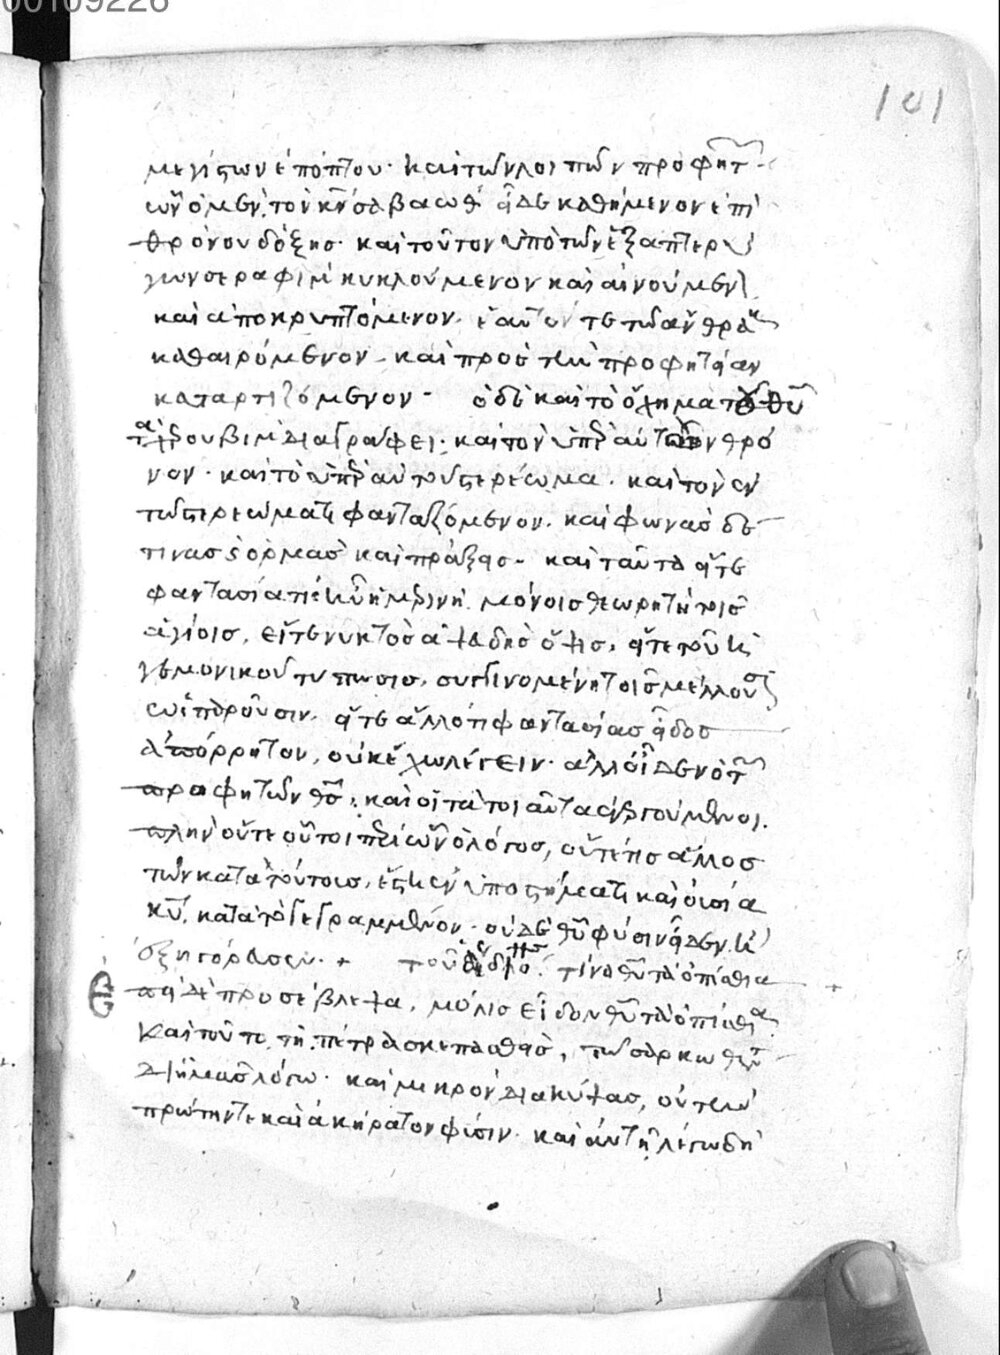 00109226
141
μεγίστων ἐπόπτου· καὶ τῶν λοιπῶν προφητ
ὧν ὁ μὲν, τὸν κν σαβαωθ εἶδε καθήμενον ἐπὶ
θρόνου δόξης· καὶ τοῦτον ὑπὸ τῶν ἑξαπτερύ
γων σεραφὶμ κυκλούμενον καὶ αἰνούμενον
καὶ ἀποκρυπτόμενον· ἑαυτόν τε τῷ ἄνθρακι
καθαιρόμενον· καὶ πρὸς τὴν προφητείαν
καταρτιζόμενον· ὁ δὲ καὶ τὸ ὄχημα τοῦ θυ
τὰ χερουβὶμ διαγράφει· καὶ τὸν ὑπὲρ αὐτῶν θρό
νον· καὶ τὸ ὑπὲρ αὐτοῦ στερέωμα· καὶ τὸν ἐν
τῷ στερεώματι φανταζόμενον· καὶ φωνὰς δέ
τινας καὶ ὁρμὰς καὶ πράξεις· καὶ ταῦτα εἴτε
φαντασία τις ἦν ἡμερινὴ μόνοις θεωρητὴ τοῖς
ἁγίοις, εἴτε νυκτὸς ἀψευδὴς ὄψις, εἴτε τοῦ ἡ
γεμονικοῦ τύπωσις, συγγινομένη τοῖς μέλλουσιν
ὡς παροῦσιν, εἴτε ἄλλό τι φαντασίας εἶδος
ἀπόρρητον, οὐκ ἔχω λέγειν· ἀλλ' οἶδεν ὁ τῶν
προφητῶν θς· καὶ οἱ τὰ τοιαῦτα ἐνεργούμενοι.
πλὴν οὔτε οὗτοι περὶ ὧν ὁ λόγος, οὔτέ τις ἄλλος
τῶν κατὰ τούτους, ἔστη ἐν ὑποστήματι καὶ οὐσίᾳ
κυ, κατὰ τὸ γεγραμμένον· οὐδὲ θυ φύσιν εἶδεν, ἢ
ἐξηγόρευσεν· + τίνα θυ τὰ ὀπίσθια +
ἐπεὶ δὲ προσέβλεψα, μόλις εἶδον θυ τὰ ὀπίσθια
καὶ τοῦτο, τῇ πέτρᾳ σκεπασθεὶς, τῷ σαρκωθέντι
δι' ἡμᾶς λόγῳ· καὶ μικρὸν διακύψας, οὐ τὴν
πρώτην τε καὶ ἀκήρατον φύσιν· καὶ ἑαυτῇ λέγω δὴ